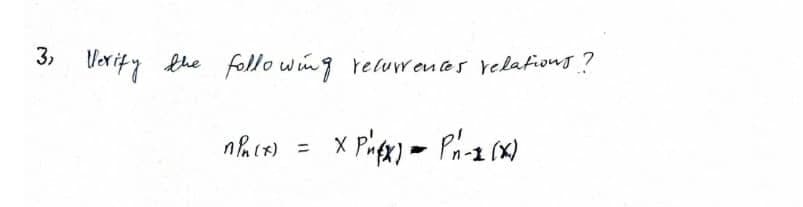 3, Verify the following recurrences relations?
nPn(x) = x P'n(x) - P'n-1(x)